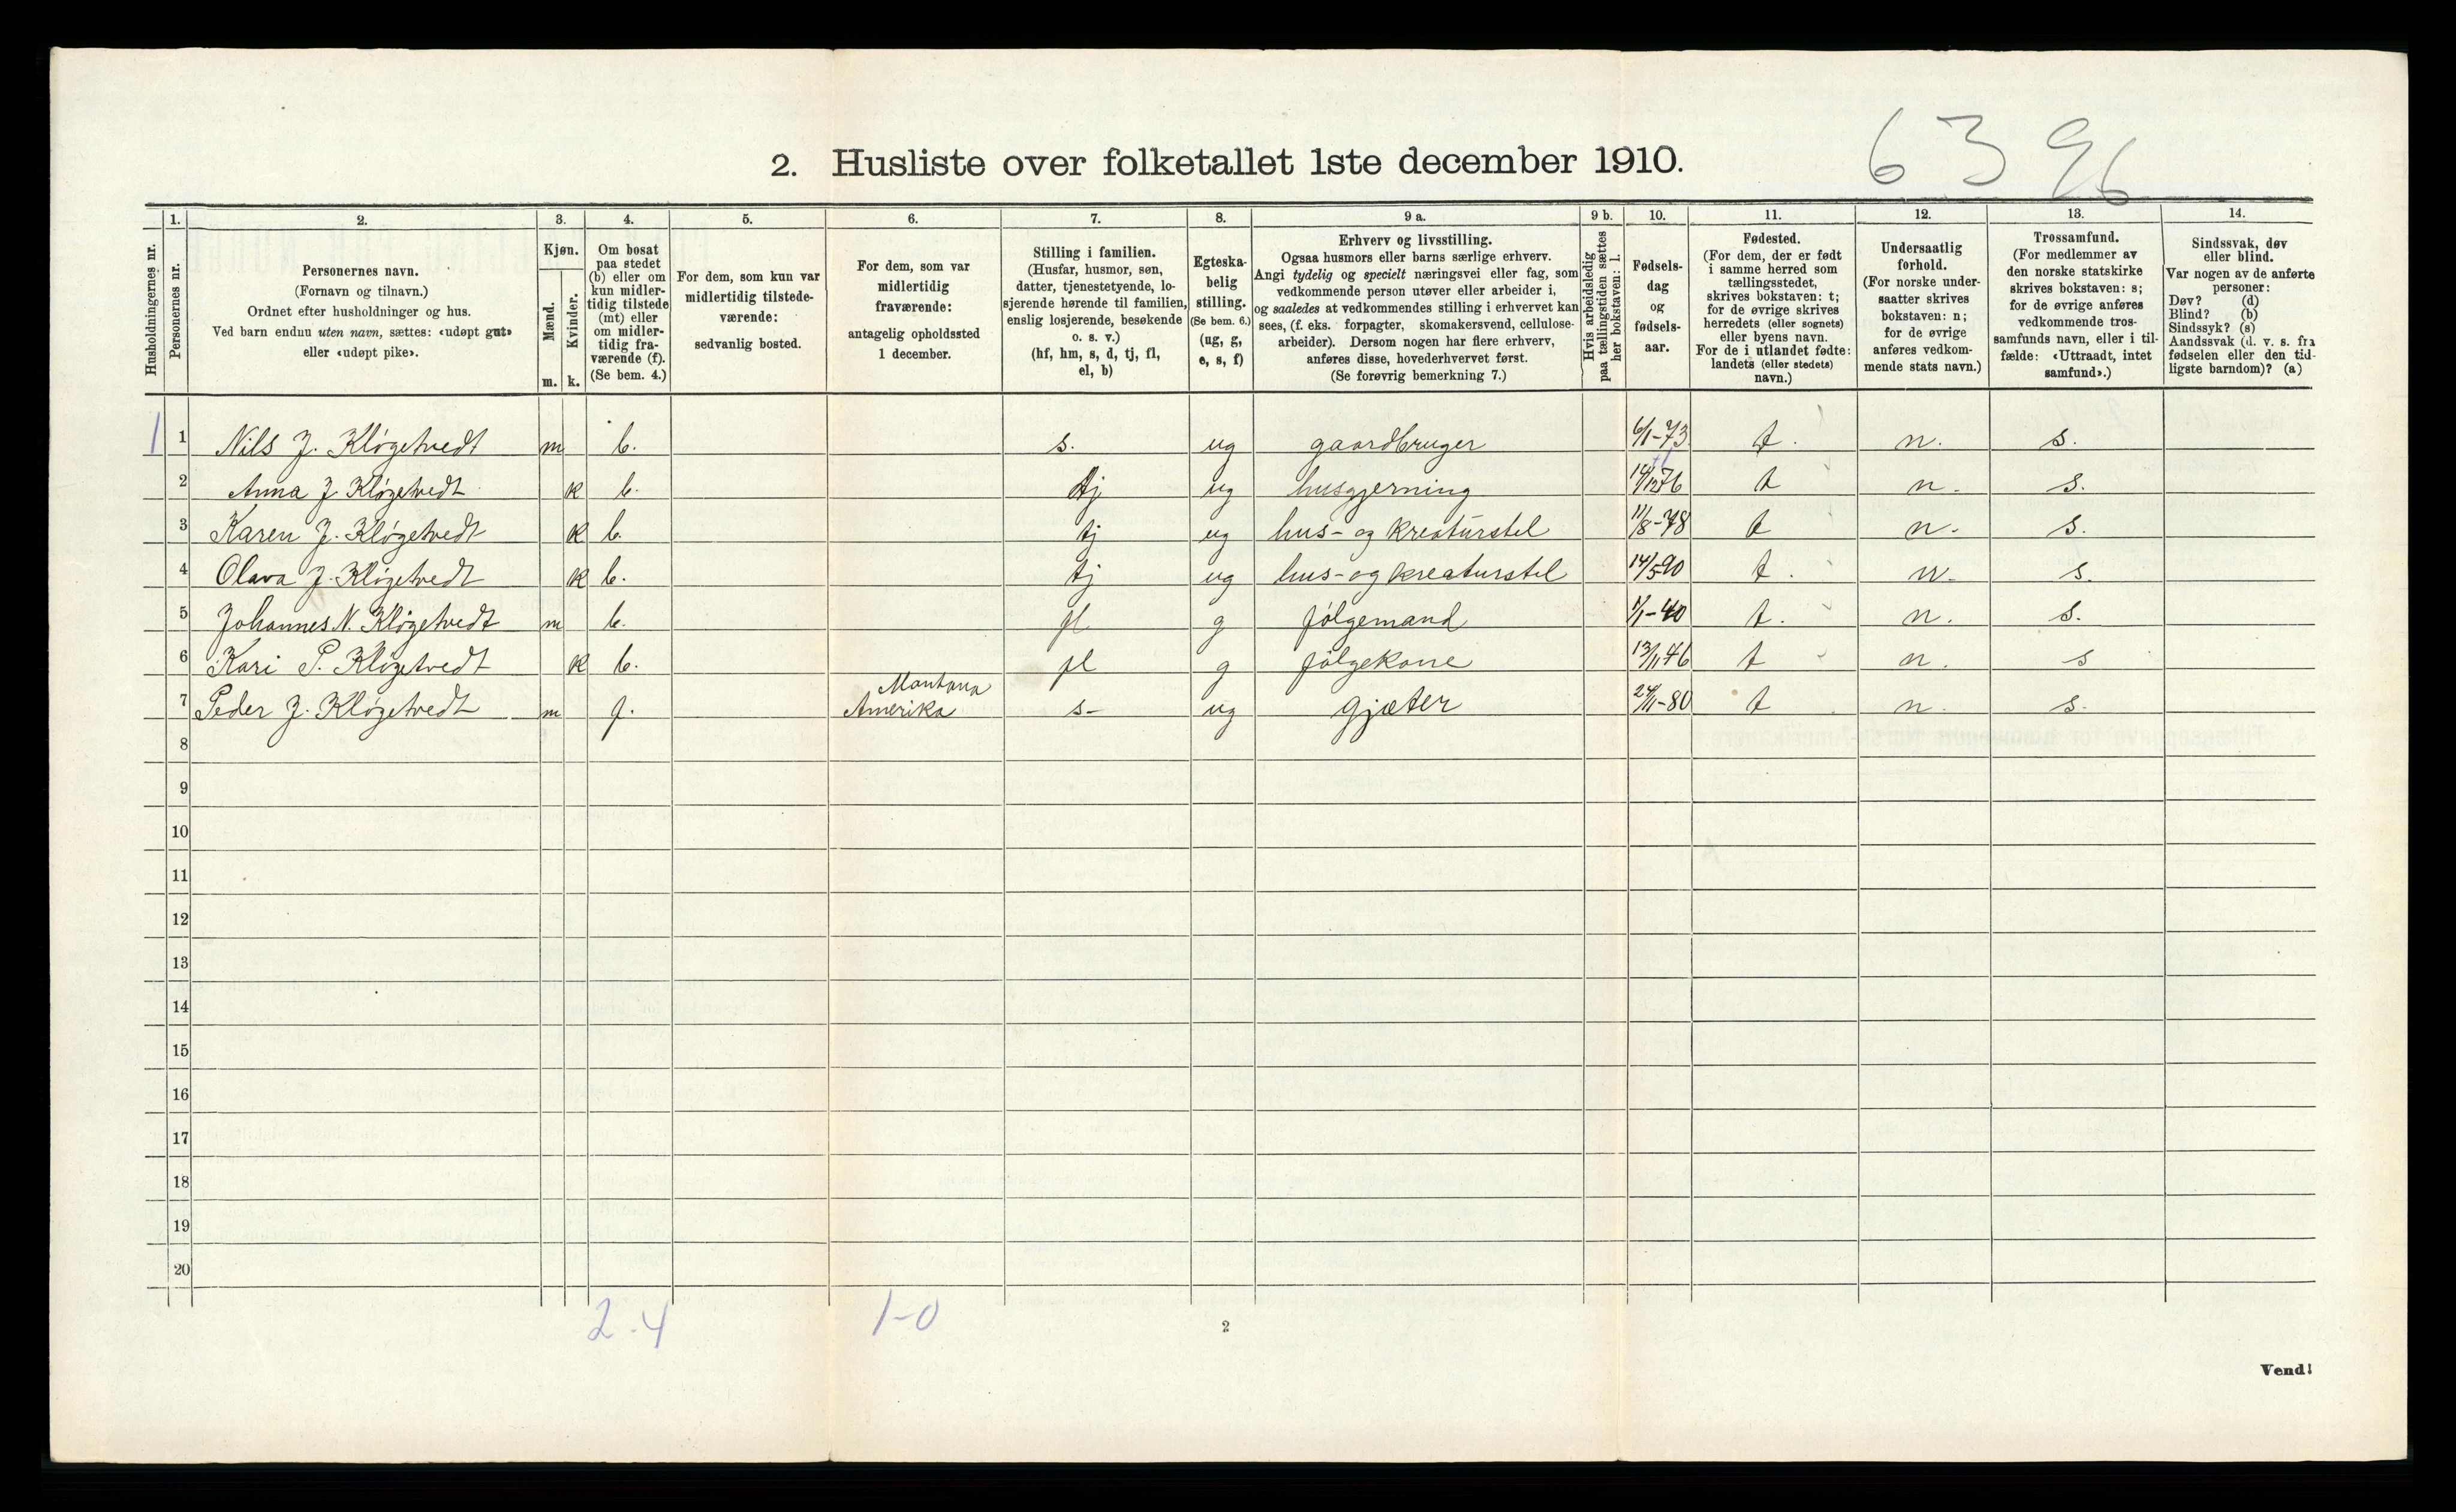 6 3 96
2. Husliste over folketallet 1ste december 1910.
Husholdningernes nr.
1.
Personernes nr.
2.
Personernes navn.
(Fornavn og tilnavn.)
Ordnet efter husholdninger og hus.
Ved barn endnu uten navn, sættes: «udøpt gut»
eller «udøpt pike».
3.
Kjøn.
Mænd.
Kvinder.
m. k.
4.
Om bosat
paa stedet
(b) eller om
kun midler-
tidig tilstede
(mt) eller
om midler-
tidig fra-
værende (f).
(Se bem. 4.)
5.
For dem, som kun var
midlertidig tilstede-
værende:
sedvanlig bosted.
6.
For dem, som var
midlertidig
fraværende:
antagelig opholdssted
1 december.
7.
Stilling i familien.
(Husfar, husmor, søn,
datter, tjenestetyende, lo-
sjerende hørende til familien,
enslig losjerende, besøkende
o. s. v.)
(hf, hm, s, d, tj, fl,
el, b)
8.
Egteska-
belig
stilling.
(Se bem. 6.)
(ug, g,
e, s, f)
9 a.
Erhverv og livsstilling.
Ogsaa husmors eller barns særlige erhverv.
Angi tydelig og specielt næringsvei eller fag, som
vedkommende person utøver eller arbeider i,
og saaledes at vedkommendes stilling i erhvervet kan
sees, (f. eks. forpagter, skomakersvend, cellulose-
arbeider). Dersom nogen har flere erhverv,
anføres disse, hovederhvervet først.
(Se forøvrig bemerkning 7.)
9 b.
Hvis arbeidsledig
paa tællingstiden sættes
her bokstaven: l.
10.
Fødsels-
dag
og
fødsels-
aar.
11.
Fødested.
(For dem, der er født
i samme herred som
tællingsstedet,
skrives bokstaven: t;
for de øvrige skrives
herredets (eller sognets)
eller byens navn.
For de i utlandet fødte:
landets (eller stedets)
navn.)
12.
Undersaatlig
forhold.
(For norske under-
saatter skrives
bokstaven: n;
for de øvrige
anføres vedkom-
mende stats navn.)
13.
Trossamfund.
(For medlemmer av
den norske statskirke
skrives bokstaven: s;
for de øvrige anføres
vedkommende tros-
samfunds navn, eller i til-
fælde: «Uttraadt, intet
samfund».)
14.
Sindssvak, døv
eller blind.
Var nogen av de anførte
personer:
Døv? (d)
Blind? (b)
Sindssyk? (s)
Aandssvak (d. v. s. fra
fødselen eller den tid-
ligste barndom)? (a)
1 1 Nils J. Kløgetvedt m b. s. ug gaardbruger 6/1-73 t. n. s.
2 Anna J Kløgetvedt k b. tj ug husgjerning 14/12 76 t n. s.
3 Karen J. Kløgetvedt k b. tj ug hus- og kreaturstel 11/8-78 t n. s.
4 Olava J. Kløgetvedt k b. tj ug hus- og kreaturstel 14/5 90 t. n. s.
5 Johannes N. Kløgetvedt m b. fl g følgemand 1/1-40 t. n. s.
6 Kari P. Kløgetvedt k b. fl g følgekone 13/11 46 t n. s
Montana
7 Peder J. Kløgetvedt m f. Amerika s- ug gjæter 24/11-80 t n. s.
8
9
10
11
12
13
14
15
16
17
18
19
20
2-4 1-0
2
Vend!